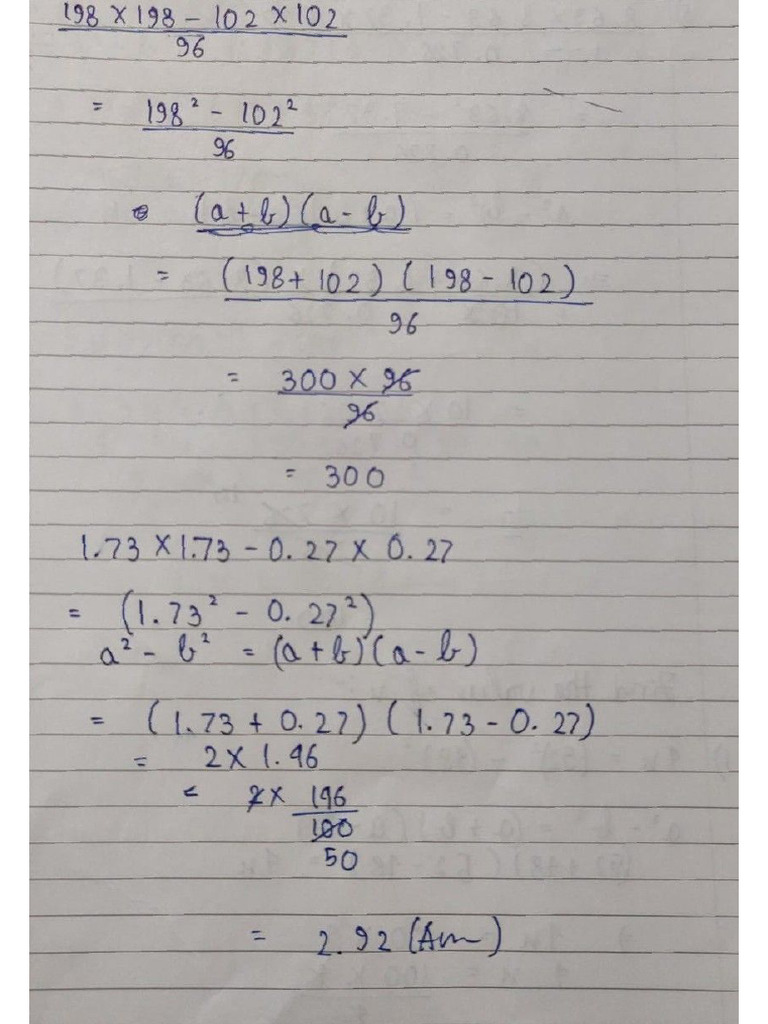 198 × 198 – 102 × 102
96
= 198² – 102²
96
(a + b) (a – b)
= (198 + 102) (198 – 102)
96
= 300 × 96
96
= 300
1.73 × 1.73 – 0.27 × 0.27
= (1.73² – 0.27²)
a² – b² = (a + b) (a – b)
= (1.73 + 0.27) (1.73 – 0.27)
= 2 × 1.46
= 2 × 146
100
50
= 2.92 (Ans)